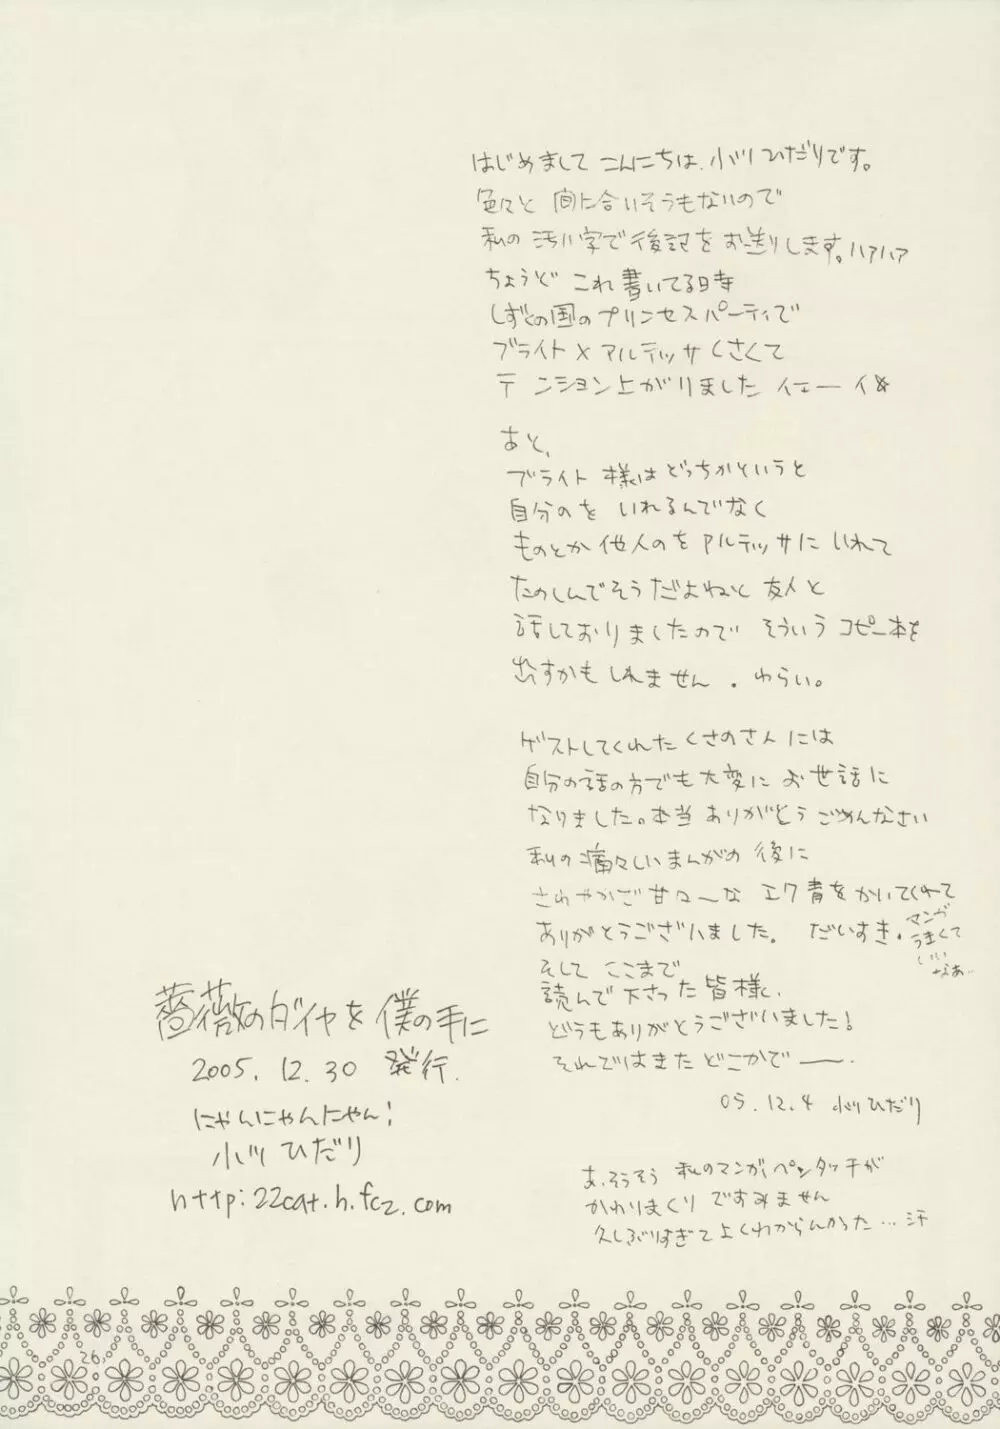 はじめまして こんにちは、小川ひだりです。
色々と 間に合いそうもないので
私の 汚い字で後記をお送りします。ハァハァ
ちょうど これ書いてる時
しずくの国のプリンセスパーティで
ブライト×アルテッサくさくて
テンション上がりました イエーイ☆
あと、
ブライト様はどっちかというと
自分のを いれるんでなく
ものとか他人のをアルテッサにいれて
たのしんでそうだよねと 友人と
話しておりましたので そういう コピー本を
出すかもしれません。わらい。
ゲストしてくれたくさのさんには
自分の話の方でも大変にお世話に
なりました。本当ありがとうごめんなさい
私の痛々しいまんがの 後に
さわやかで甘々〜な エク青をかいてくれて
ありがとうございました。 だいすき。
マンガ
うまくて
いい
なぁ…
そして ここまで
読んで下さった皆様、
どうもありがとうございました!
それではまた どこかで――.
05.12.4 小川ひだり
あ、そうそう 私のマンガ、ペンタッチが
かわりまくりですみません
久しぶりすぎてよくわからんかった…汗
薔薇のダイヤを僕の手に
2005.12.30 発行.
にゃんにゃんにゃん!
小川ひだり
http:22cat.h.fc2.com
26